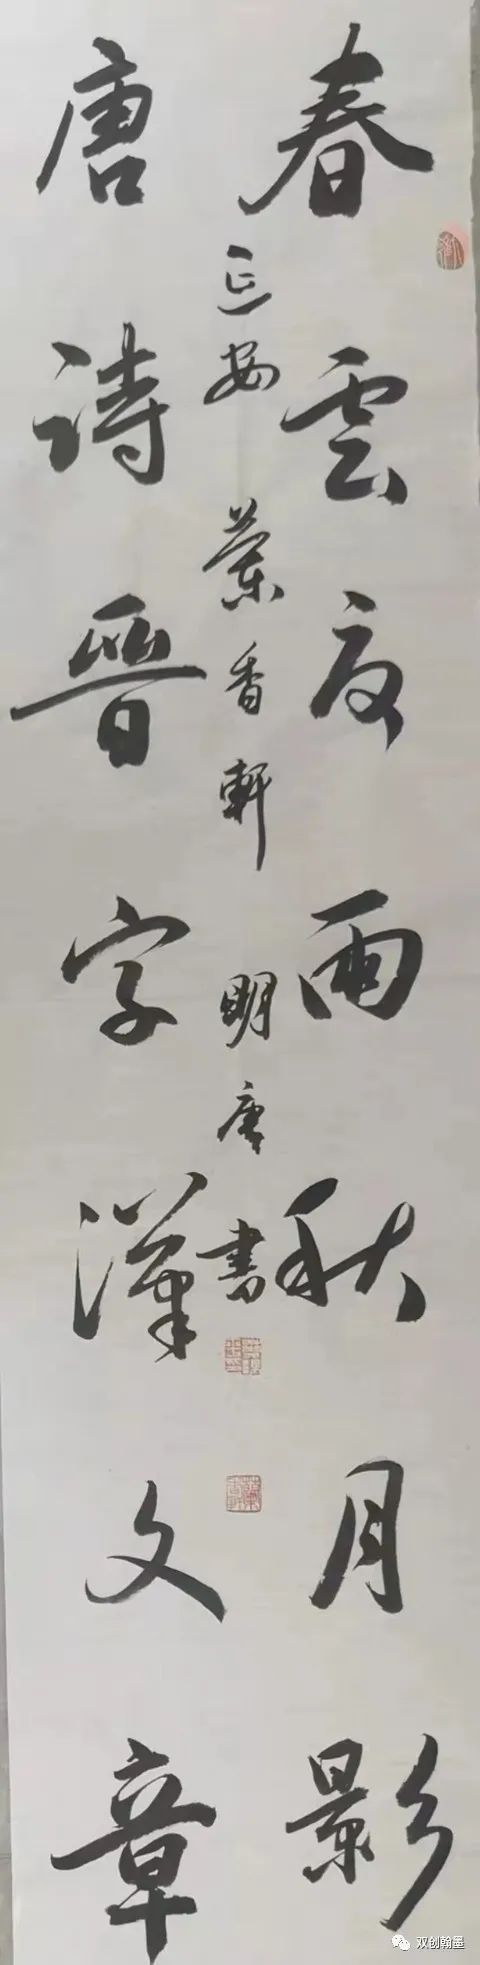 春雲夜雨秋月影
唐詩晉字漢文章
延安 蘭香軒 明唐書
双创翰墨